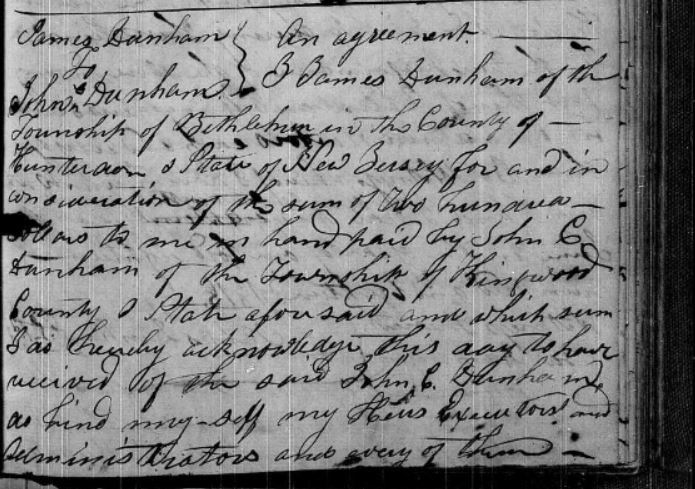 James Dunham { An agreement.
To
John C. Dunham. } I James Dunham of the
Township of Bethlehem in the County of
Hunterdon & State of New Jersey for and in
consideration of the sum of two hundred
dollars to me in hand paid by John C
Dunham of the Township of Kingwood
County & State aforesaid and which sum
I do hereby acknowledge this day to have
received of the said John C. Dunham,
do bind my-self my Heirs Executors and
administrators and every of them